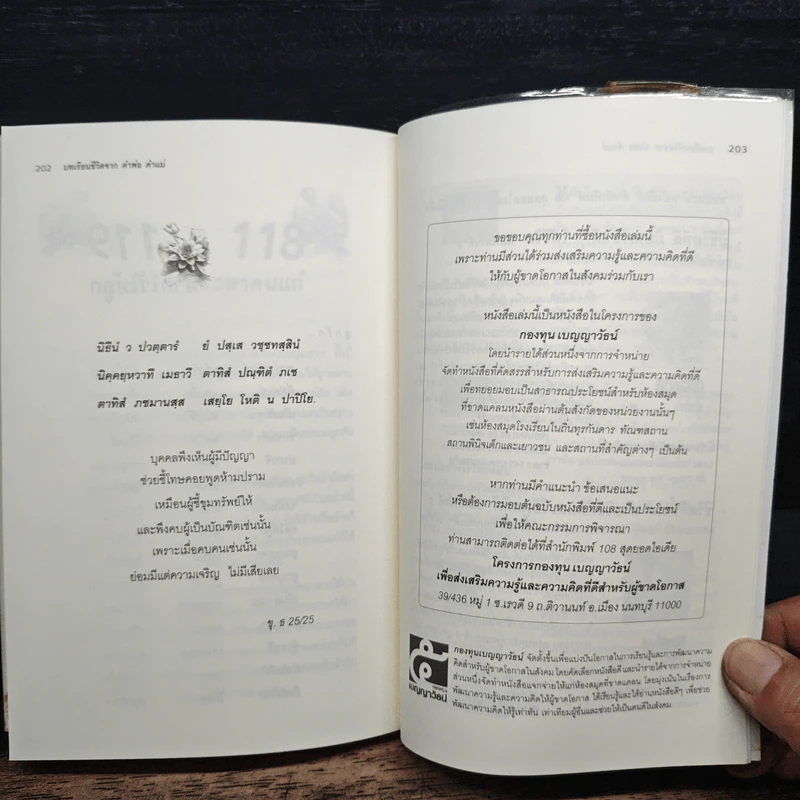 202 บทเรียนชีวิตจาก คำพ่อ คำแม่
นิธีนํ ว ปวตฺตารํ ยํ ปสฺเส วชฺชทสฺสินํ
นิคฺคยฺหวาทึ เมธาวึ ตาทิสํ ปณฺฑิตํ ภเช
ตาทิสํ ภชมานสฺส เสยฺโย โหติ น ปาปิโย.
บุคคลพึงเห็นผู้มีปัญญา
ช่วยชี้โทษคอยพูดห้ามปราม
เหมือนผู้ชี้ขุมทรัพย์ให้
และพึงคบผู้เป็นบัณฑิตเช่นนั้น
เพราะเมื่อคบคนเช่นนั้น
ย่อมมีแต่ความเจริญ ไม่มีเสียเลย
ขุ. ธ 25/25
203
ขอขอบคุณทุกท่านที่ซื้อหนังสือเล่มนี้
เพราะท่านมีส่วนได้ร่วมส่งเสริมความรู้และความคิดที่ดี
ให้กับผู้ขาดโอกาสในสังคมร่วมกับเรา
หนังสือเล่มนี้เป็นหนังสือในโครงการของ
กองทุน เบญญาวัธน์
โดยนำรายได้ส่วนหนึ่งจากการจำหน่าย
จัดทำหนังสือที่คัดสรรสำหรับการส่งเสริมความรู้และความคิดที่ดี
เพื่อทยอยมอบเป็นสาธารณประโยชน์สำหรับห้องสมุด
ที่ขาดแคลนหนังสือผ่านต้นสังกัดของหน่วยงานนั้นๆ
เช่นห้องสมุดโรงเรียนในถิ่นทุรกันดาร ทัณฑสถาน
สถานพินิจเด็กและเยาวชน และสถานที่สำคัญต่างๆ เป็นต้น
หากท่านมีคำแนะนำ ข้อเสนอแนะ
หรือต้องการมอบต้นฉบับหนังสือที่ดีและเป็นประโยชน์
เพื่อให้คณะกรรมการพิจารณา
ท่านสามารถติดต่อได้ที่สำนักพิมพ์ 108 สุดยอดไอเดีย
โครงการกองทุน เบญญาวัธน์
เพื่อส่งเสริมความรู้และความคิดที่ดีสำหรับผู้ขาดโอกาส
39/436 หมู่ 1 ซ.เรวดี 9 ถ.ติวานนท์ อ.เมือง นนทบุรี 11000
กองทุนเบญญาวัธน์ จัดตั้งขึ้นเพื่อแบ่งปันโอกาสในการเรียนรู้และการพัฒนาความ
คิดสำหรับผู้ขาดโอกาสในสังคม โดยคัดเลือกหนังสือดี และนำรายได้จากการจำหน่าย
ส่วนหนึ่งจัดทำหนังสือแจกจ่ายให้แก่ห้องสมุดที่ขาดแคลน โดยมุ่งเน้นในเรื่องการ
พัฒนาความรู้และความคิดให้ผู้ขาดโอกาส ได้เรียนรู้และได้อ่านหนังสือดีๆ เพื่อช่วย
พัฒนาความคิดให้รู้เท่าทัน เท่าเทียมผู้อื่นและช่วยให้เป็นคนดีในสังคม
เบญญาวัธน์